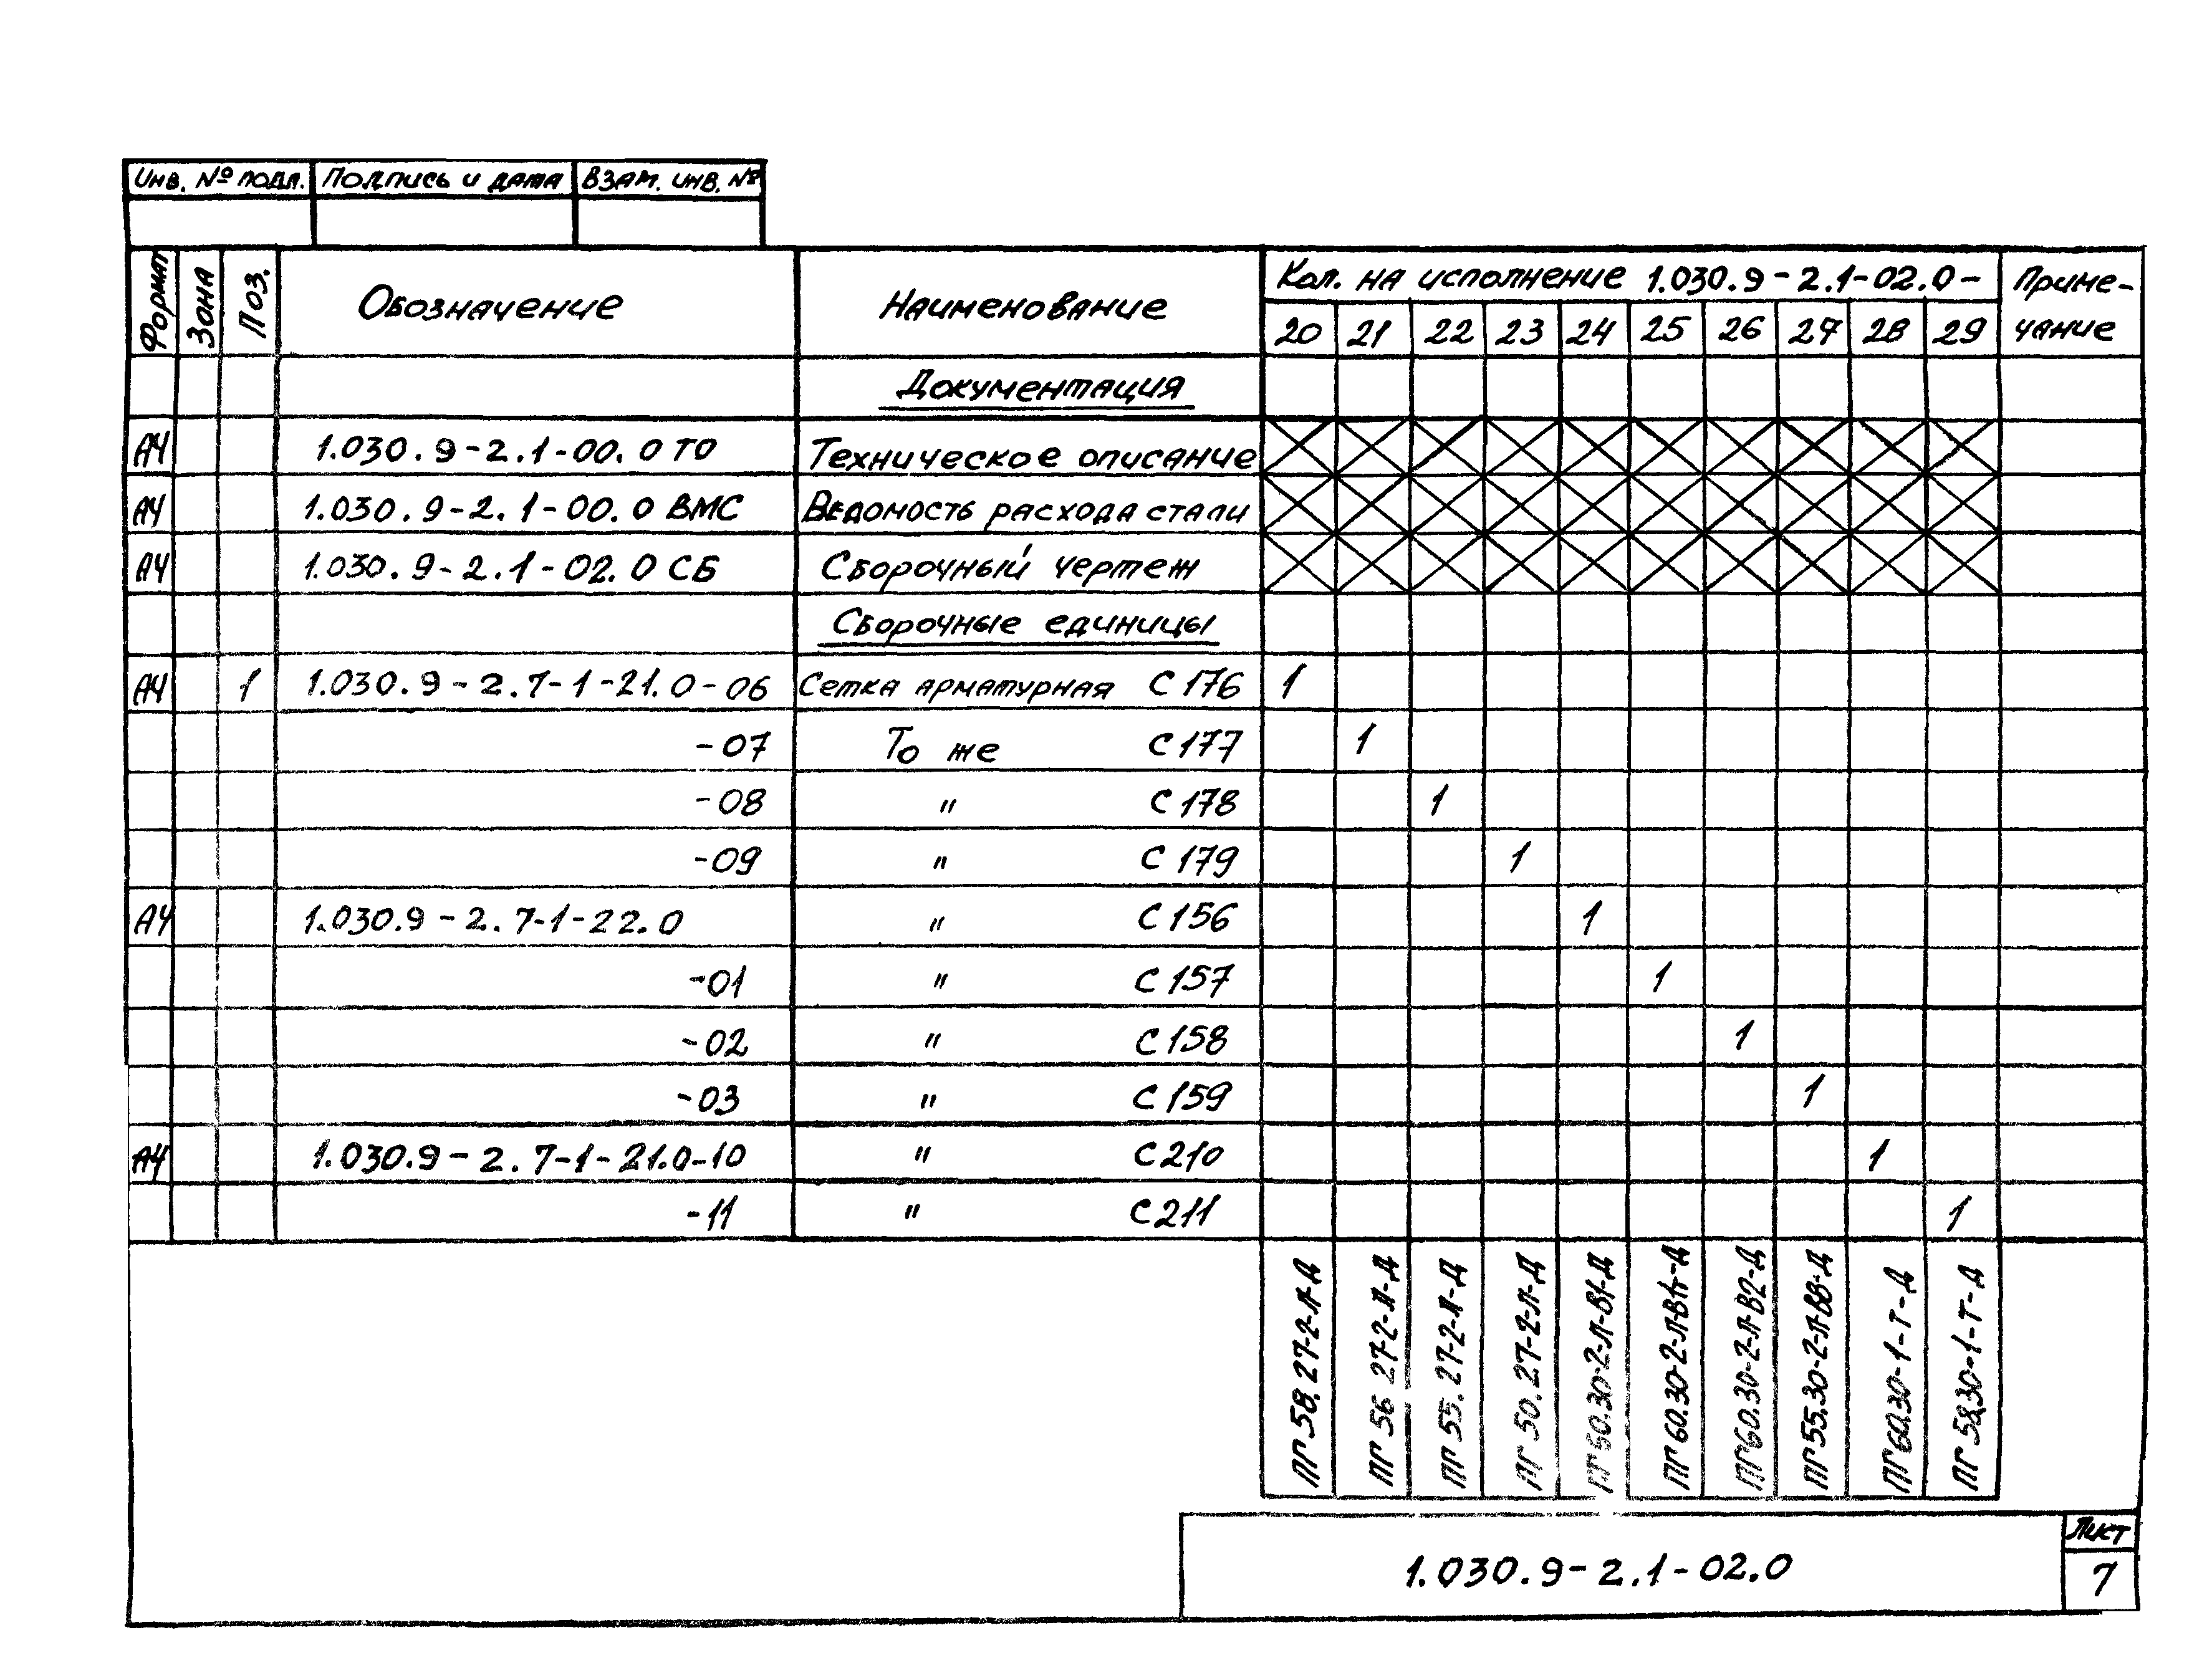 Инв. № подл. Подпись и дата Взам. инв. №
Формат Зона Поз. Обозначение Наименование Кол. на исполнение 1.030.9-2.1-02.0- Приме-
20 21 22 23 24 25 26 27 28 29 чание
Документация
А4 1.030.9-2.1-00.0 ТО Техническое описание
А4 1.030.9-2.1-00.0 ВМС Ведомость расхода стали
А4 1.030.9-2.1-02.0 СБ Сборочный чертеж
Сборочные единицы
А4 1 1.030.9-2.7-1-21.0-06 Сетка арматурная С 176 1
-07 То же С 177 1
-08 " С 178 1
-09 " С 179 1
А4 1.030.9-2.7-1-22.0 " С 156 1
-01 " С 157 1
-02 " С 158 1
-03 " С 159 1
А4 1.030.9-2.7-1-21.0-10 " С 210 1
-11 " С 211 1
ПГ 58.27-2-Л-Д
ПГ 56 27-2-Л-Д
ПГ 55.27-2-Л-Д
ПГ 50.27-2-Л-Д
ПГ 60.30-2-Л-В2-Д
ПГ 60.30-1-Т-Д
ПГ 58.30-1-Т-Д
1.030.9-2.1-02.0
Лист
7